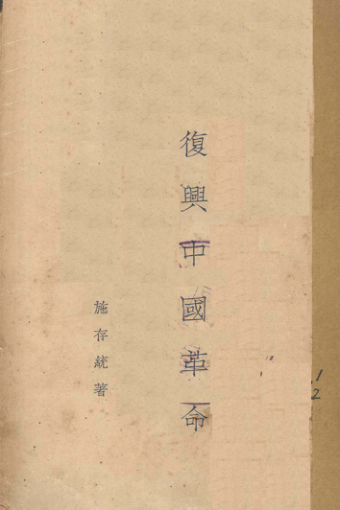 復興中國革命
施存統著
1
2